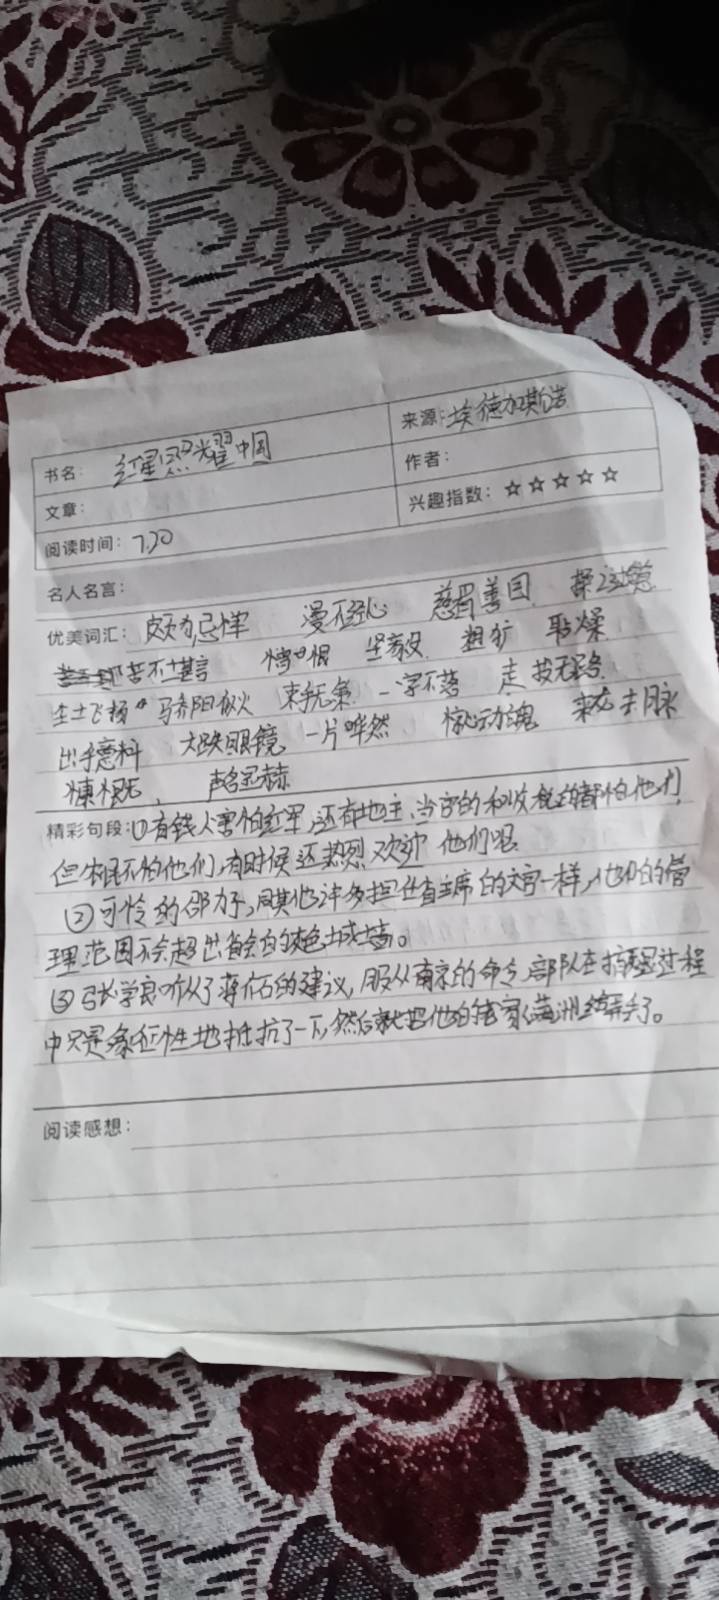 书名： 红星照耀中国
来源：埃德加斯诺
文章：
作者：
阅读时间：7.20
兴趣指数：☆☆☆☆☆
名人名言：
优美词汇： 颇为 漫不经心 慈眉善目
苦不堪言 憎恨 坚毅 粗犷
尘土飞扬 骄阳似火 束手无策 一字不落 走投无路
出乎意料 大跌眼镜 一片哗然 惊心动魄 来龙去脉
慷慨 声名显赫
精彩句段：①有钱人害怕红军,还有地主、当官的和收税的都怕他们,
但农民不怕他们,有时候还热烈欢迎他们呢
②可怜的邵力子,同其他许多担任省主席的文官一样,他的管
理范围不会超出省会的灰色城墙。
③张学良听从了蒋介石的建议,服从南京的命令,部队在撤退过程
中只是象征性地抵抗了一下,然后就把他的老家满洲给弄丢了。
阅读感想：